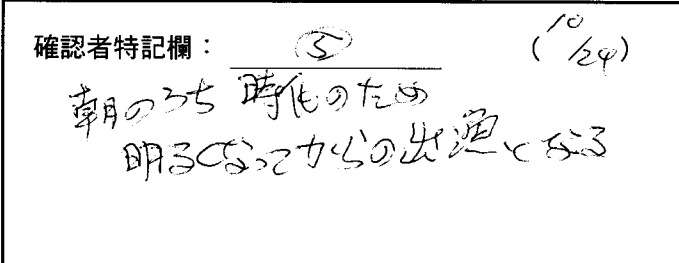 確認者特記欄： ⑤ (10/24)
朝のうち 時化のため
明るくなってからの出漁となる